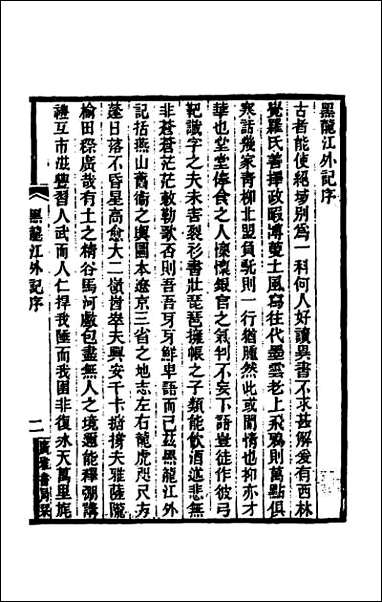 黑龍江外記序
古者能使絕域別為一科何人好讀異書不求甚解爰有西林
覺羅氏著擇政暇溥蔓土風寫往代墨雲老上飛鴉則萬點俱
寒話幾家青柳北盟負乾則一行猶然此或閒情也抑亦才
華也堂堂俸食之人懍懍銀官之氣判不妄下語豈徒作彼弓
靶識字之夫未害裂衫書壯琵琶擁帳之子類能飲酒遂悲無
非蒼蒼茫茫敕勒歌否則吾吾牙牙鮮卑語而已茲黑龍江外
記括燕山舊衞之輿圖本遼京三省之地志左右龍虎咫尺方
蓬日落不昏星高愈大二嶺酋舉夫興安千卡掎夫雅薩隴
榆田穄廣哉有土之精谷馬河獻包盡無人之境遒能釋弸講
禮互市滋豐習人武而人仁捍我陲而我圉非復氷天萬里旄
黑龍江外記序
一
廣雅書局栞